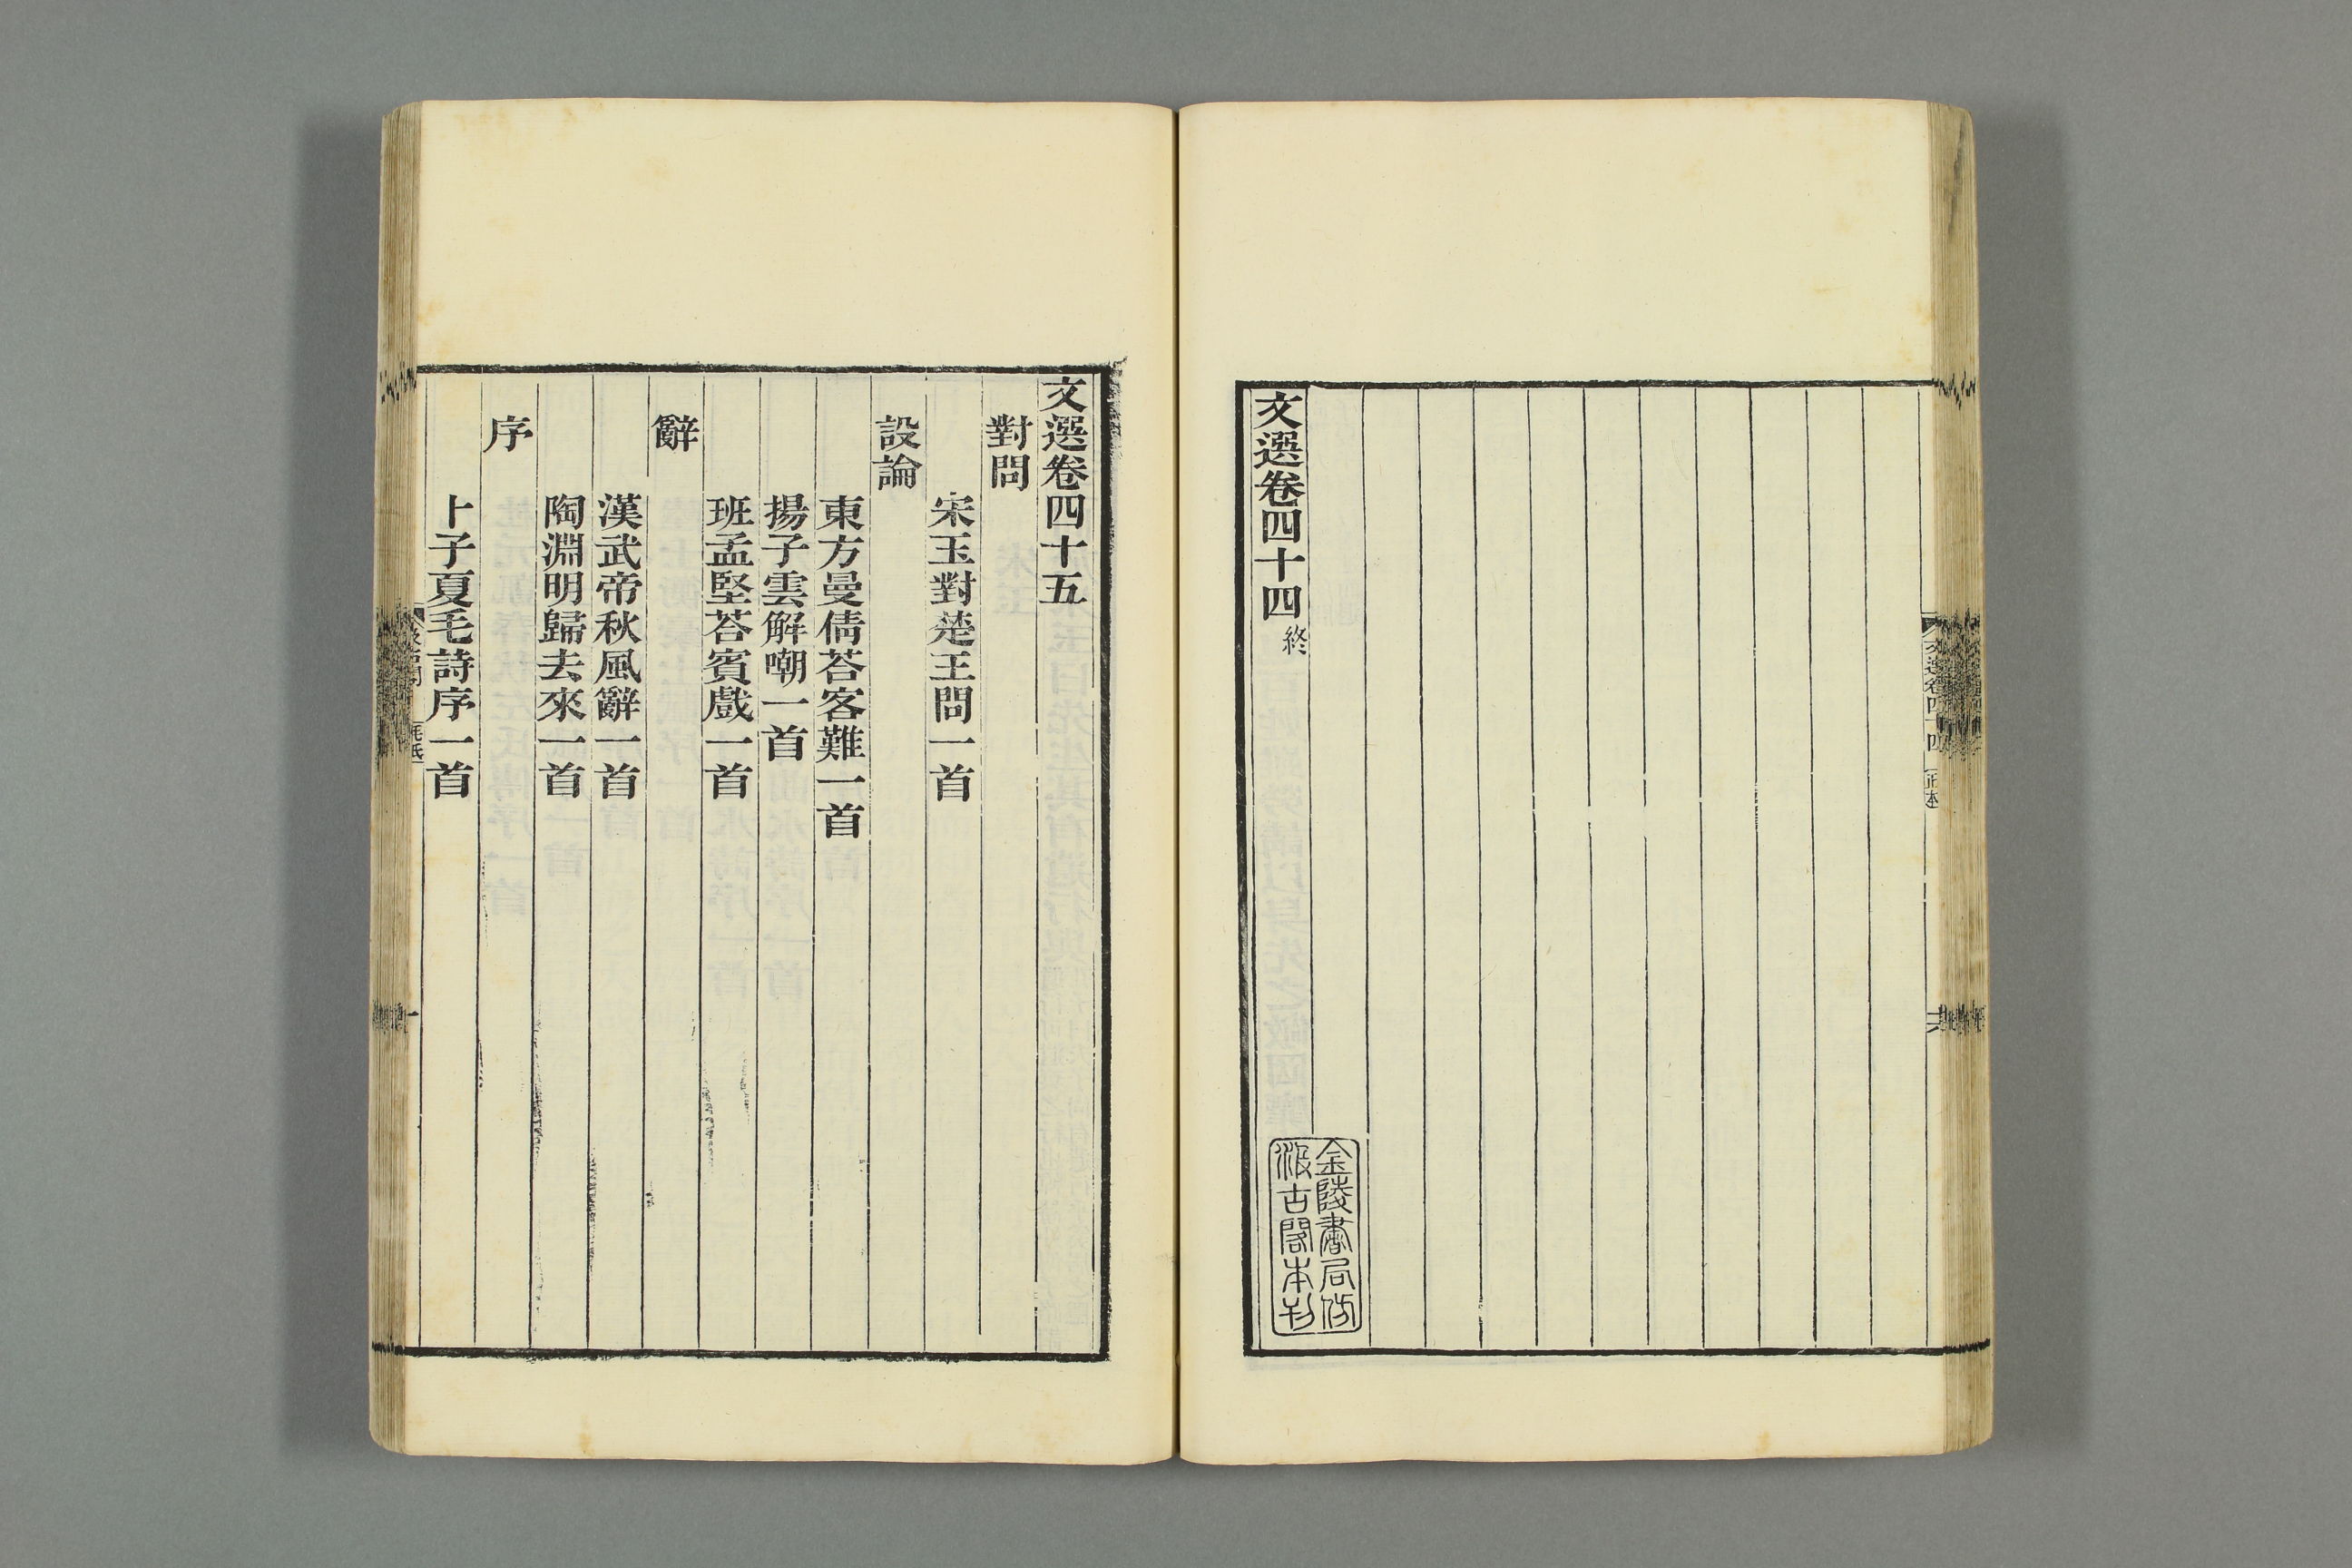 文選卷四十四終
金陵書局仿
汲古閣本刊
文選卷四十四
文選卷四十五
對問
宋玉對楚王問一首
設論
東方曼倩荅客難一首
揚子雲解嘲一首
班孟堅荅賓戲一首
辭
漢武帝秋風辭一首
陶淵明歸去來一首
序
卜子夏毛詩序一首